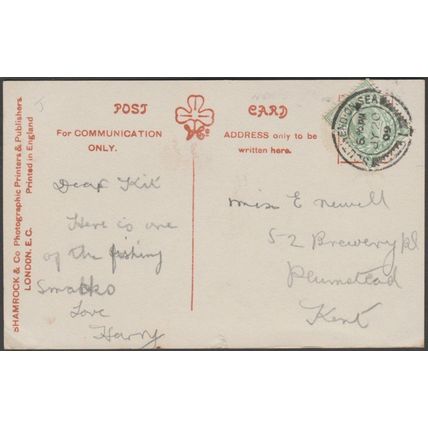 POST CARD
For COMMUNICATION
ONLY.
ADDRESS only to be
written here.
SHAMROCK & Co Photographic Printers & Publishers.
LONDON. E.C. Printed in England
Dear Kit
Here is one
of the fishing
Smacks
Love
Harry
Miss E Newell
52 Brewery Rd
Plumstead
Kent